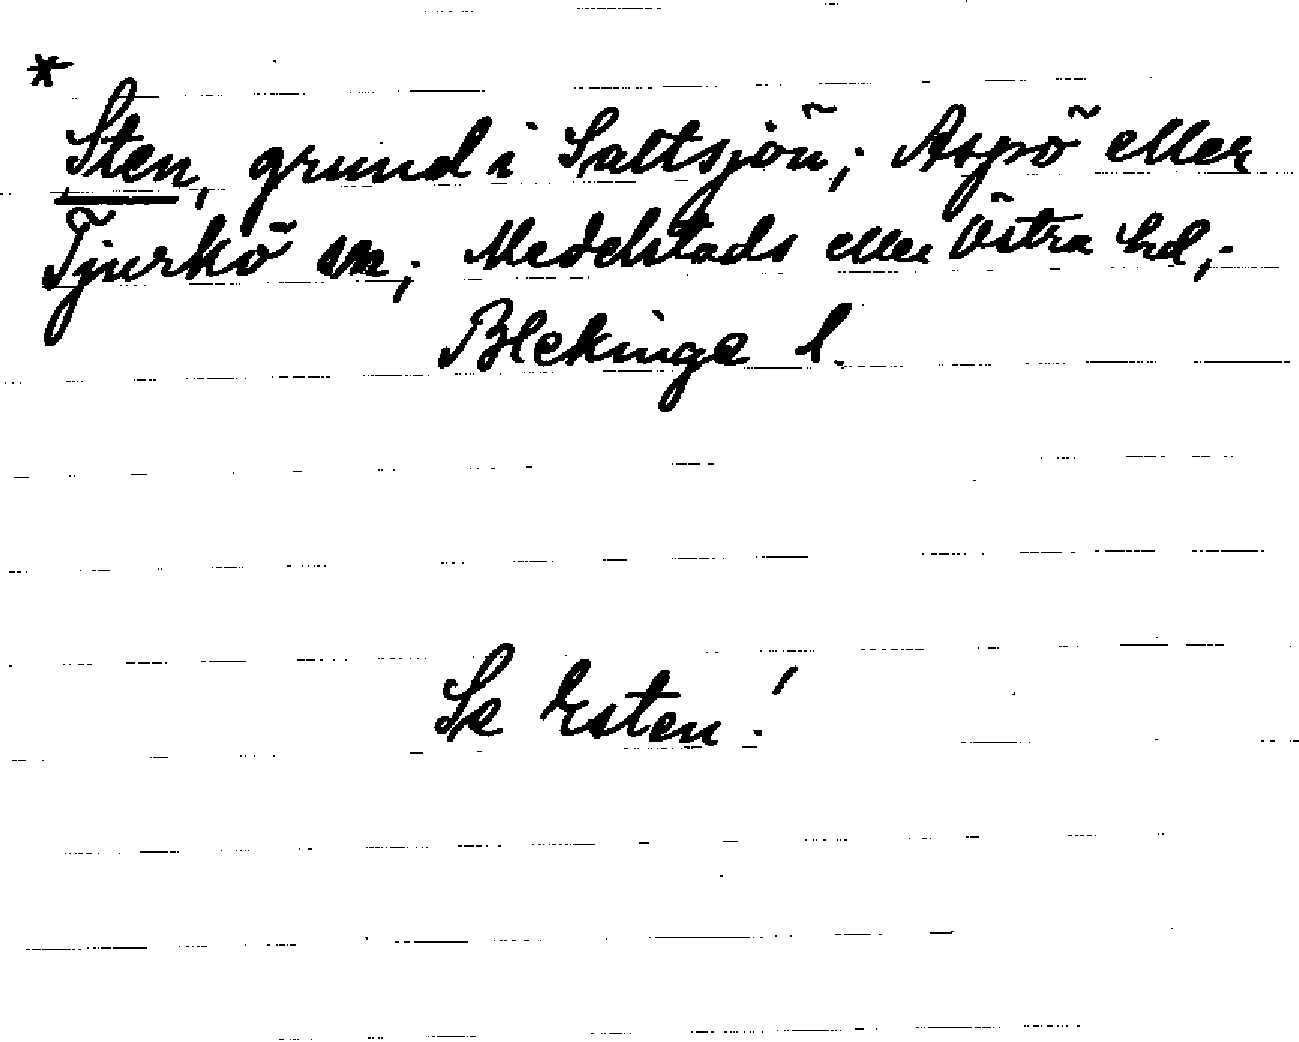 *
Sten, grund i Saltsjön; Aspö eller
Tjurkö sn; Medelstads eller Östra hd;
Blekinge l.
Se Esten!